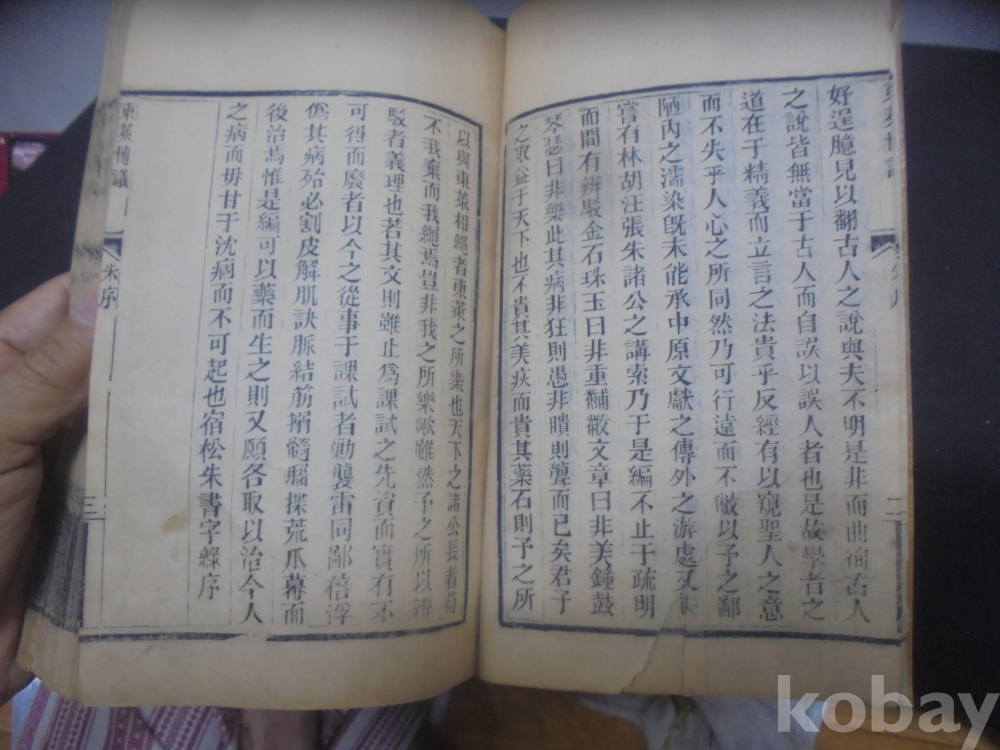 好逞臆見以翻古人之說與夫不明是非而曲徇古人
之說皆無當于古人而自誤以誤人者也是故學者之
道在于精義而立言之法貴乎反經有以窺聖人之意
而不失乎人心之所同然乃可行遠而不敝以予之鄙
陋內之濡染旣未能承中原文獻之傳外之游處又未
嘗有林胡汪張朱諸公之講索乃于是編不止于疏明
而間有辨駁金石珠玉曰非重黼黻文章曰非美鐘鼓
琴瑟曰非樂此其病非狂則愚非瞶則聾而已矣君子
之取益于天下也不貴其美疢而貴其藥石則予之所
二
以與東萊相繩者東萊之所樂也天下之諸公長者苟
不我棄而我繩焉豈非我之所樂歟雖然予之所以辨
駁者義理也若其文則雖止爲課試之先資而實有不
可得而廢者以今之從事于課試者勦襲雷同鄙倍浮
僞其病殆必割皮解肌訣脈結筋搦髓腦揲荒爪幕而
後治焉惟是編可以藥而生之則又願各取以治今人
之病而毋甘于沈痼而不可起也宿松朱書字綠序
東萊博議
朱序
三
kobay